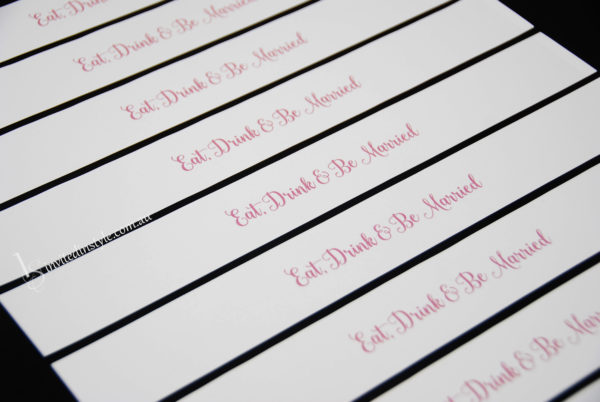 Eat, Drink
Eat, Drink & Be Married
Eat, Drink & Be Married
Eat, Drink & Be Married
Eat, Drink & Be Married
Eat, Drink & Be Married
Eat, Drink & Be Married
Eat, Drink & Be Married
invitedinstyle.com.au